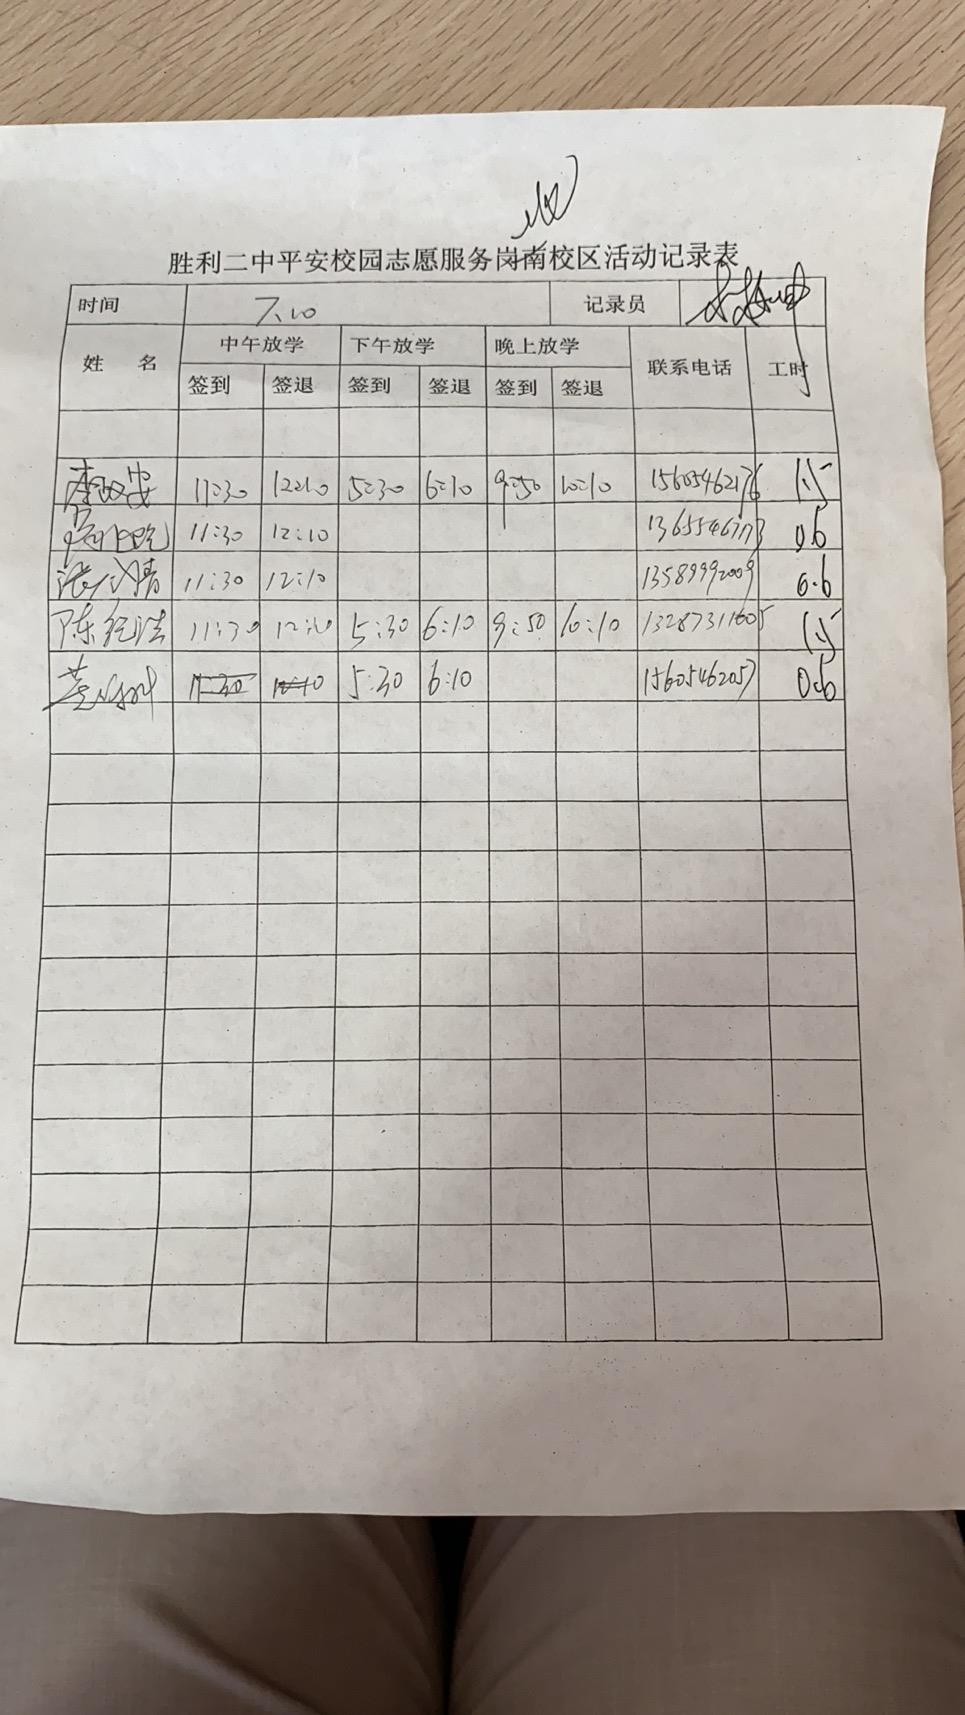 胜利二中平安校园志愿服务岗南校区活动记录表
时间 7.10 记录员
姓 名 中午放学 下午放学 晚上放学 联系电话 工时
签到 签退 签到 签退 签到 签退
11:30 12:10 5:30 6:10 9:50 10:10 15605462176 1.5
11:30 12:10 0.6
11:30 12:10 13589992009 0.6
陈 11:30 12:10 5:30 6:10 9:50 10:10 13287311605 1.5
11:30 5:30 6:10 15605462057 0.6